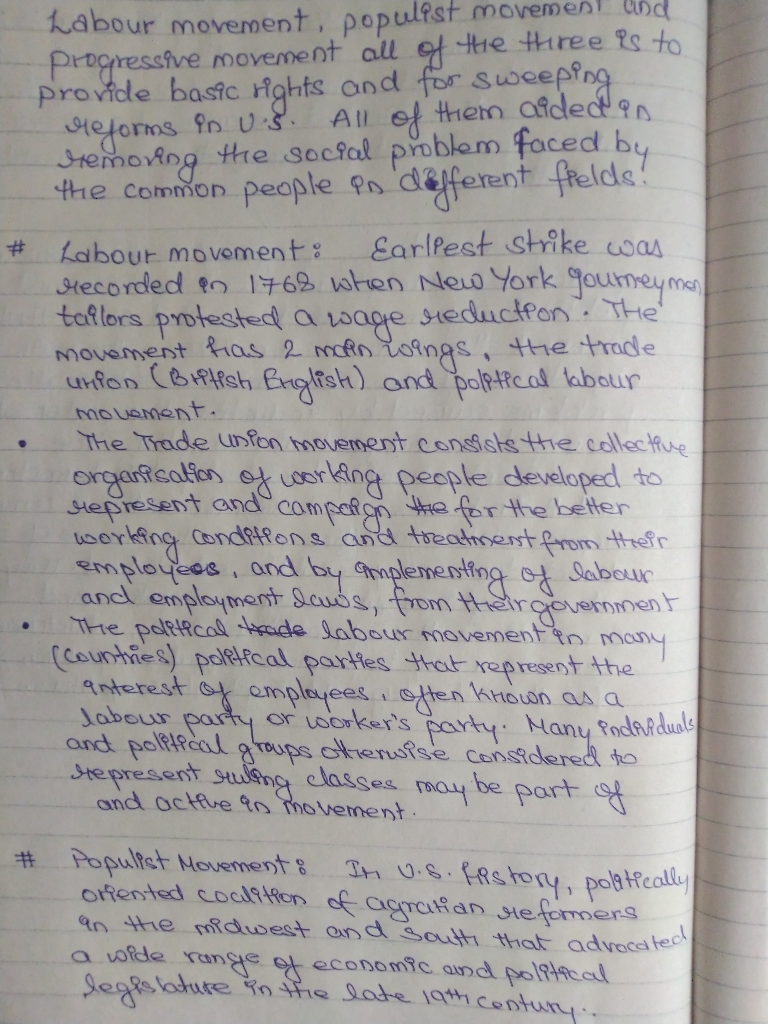 Labour movement, populist movement and
progressive movement all of the three is to
provide basic rights and for sweeping
reforms in U.S. All of them aided in
removing the social problem faced by
the common people in different fields.
# Labour movement: Earliest strike was
recorded in 1768 when New York journeymen
tailors protested a wage reduction. The
movement has 2 main wings, the trade
union (British English) and political labour
movement.
• The Trade union movement consists the collective
organisation of working people developed to
represent and campaign the for the better
working conditions and treatment from their
employees, and by implementing of labour
and employment laws, from their government
• The political trade labour movement in many
(countries) political parties that represent the
interest of employees, often known as a
labour party or worker's party. Many individuals
and political groups otherwise considered to
represent ruling classes may be part of
and active in movement.
# Populist Movement: In U.S. history, politically
oriented coalition of agration reformers
in the midwest and south that advocated
a wide range of economic and political
legislature in the late 19th century..